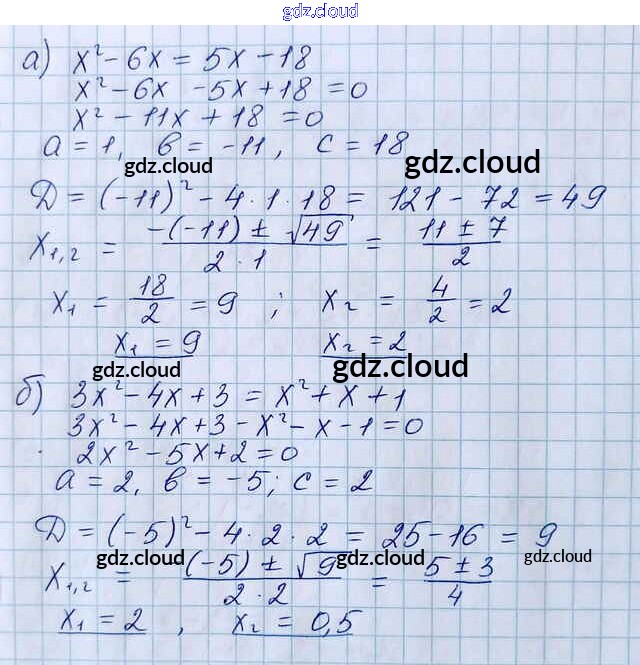 gdz.cloud
а) x² - 6x = 5x - 18
x² - 6x - 5x + 18 = 0
x² - 11x + 18 = 0
a = 1, в = -11, c = 18
gdz.cloud gdz.cloud
Д = (-11)² - 4·1·18 = 121 - 72 = 49
x₁,₂ = (-(-11) ± √49) / (2·1) = (11 ± 7) / 2
x₁ = 18/2 = 9 ; x₂ = 4/2 = 2
x₁ = 9 x₂ = 2
gdz.cloud gdz.cloud
б) 3x² - 4x + 3 = x² + x + 1
3x² - 4x + 3 - x² - x - 1 = 0
2x² - 5x + 2 = 0
a = 2, в = -5; c = 2
Д = (-5)² - 4·2·2 = 25 - 16 = 9
gdz.cloud gdz.cloud gdz.cloud
x₁,₂ = ((-5) ± √9) / (2·2) = (5 ± 3) / 4
x₁ = 2 , x₂ = 0,5
gdz.cloud gdz.cloud